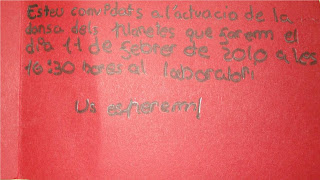 Esteu convidats a l'actuació de la
dansa dels planetes que farem el
dia 11 de febrer de 2010 a les
10:30 hores al laboratori
Us esperem!